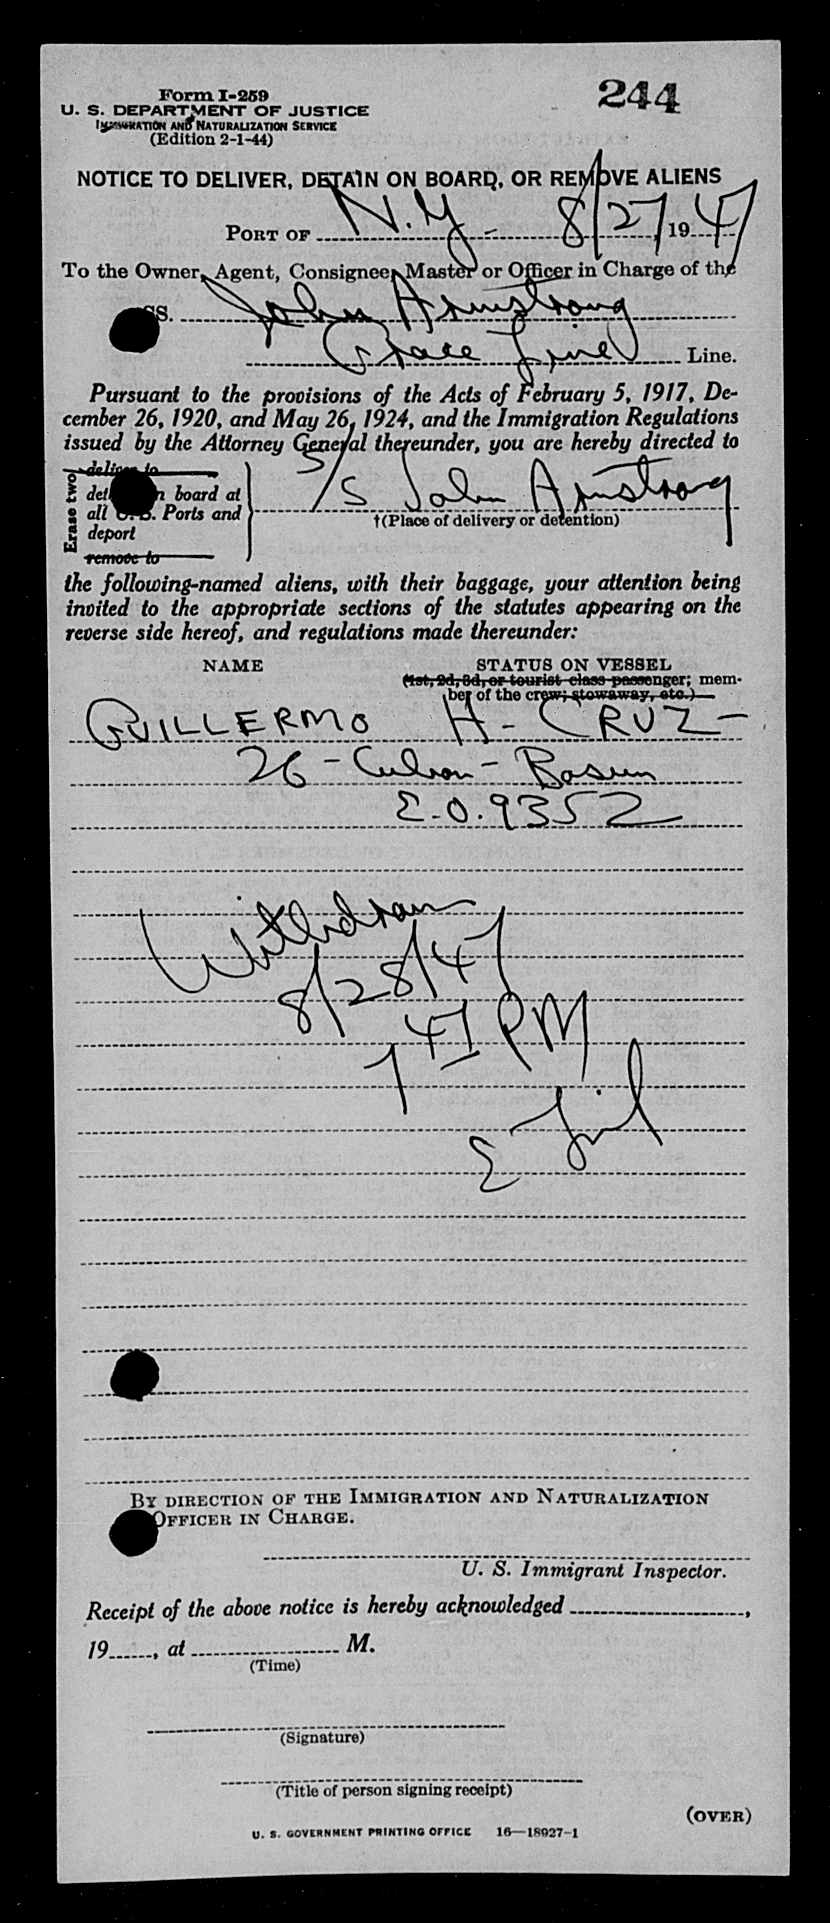 244
Form I-259
U. S. DEPARTMENT OF JUSTICE
IMMIGRATION AND NATURALIZATION SERVICE
(Edition 2-1-44)
NOTICE TO DELIVER, DETAIN ON BOARD, OR REMOVE ALIENS
PORT OF N.Y. - 8/27, 1947
To the Owner, Agent, Consignee, Master or Officer in Charge of the
SS. John Armstrong
Grace Line Line.
Pursuant to the provisions of the Acts of February 5, 1917, De-
cember 26, 1920, and May 26, 1924, and the Immigration Regulations
issued by the Attorney General thereunder, you are hereby directed to
Erase two
deliver to
detain on board at
all U.S. Ports and
deport
remove to
S/S John Armstrong
†(Place of delivery or detention)
the following-named aliens, with their baggage, your attention being
invited to the appropriate sections of the statutes appearing on the
reverse side hereof, and regulations made thereunder:
NAME STATUS ON VESSEL
(1st, 2d, 3d, or tourist class passenger; mem-
ber of the crew; stowaway, etc.)
GUILLERMO H- CRUZ-
26 - Cuban - Bosun
E.O. 9352
Withdrawn
8/28/47
7 47 PM
E
BY DIRECTION OF THE IMMIGRATION AND NATURALIZATION
OFFICER IN CHARGE.
U. S. Immigrant Inspector.
Receipt of the above notice is hereby acknowledged ,
19 , at M.
(Time)
(Signature)
(Title of person signing receipt)
(OVER)
U. S. GOVERNMENT PRINTING OFFICE 16—18927-1